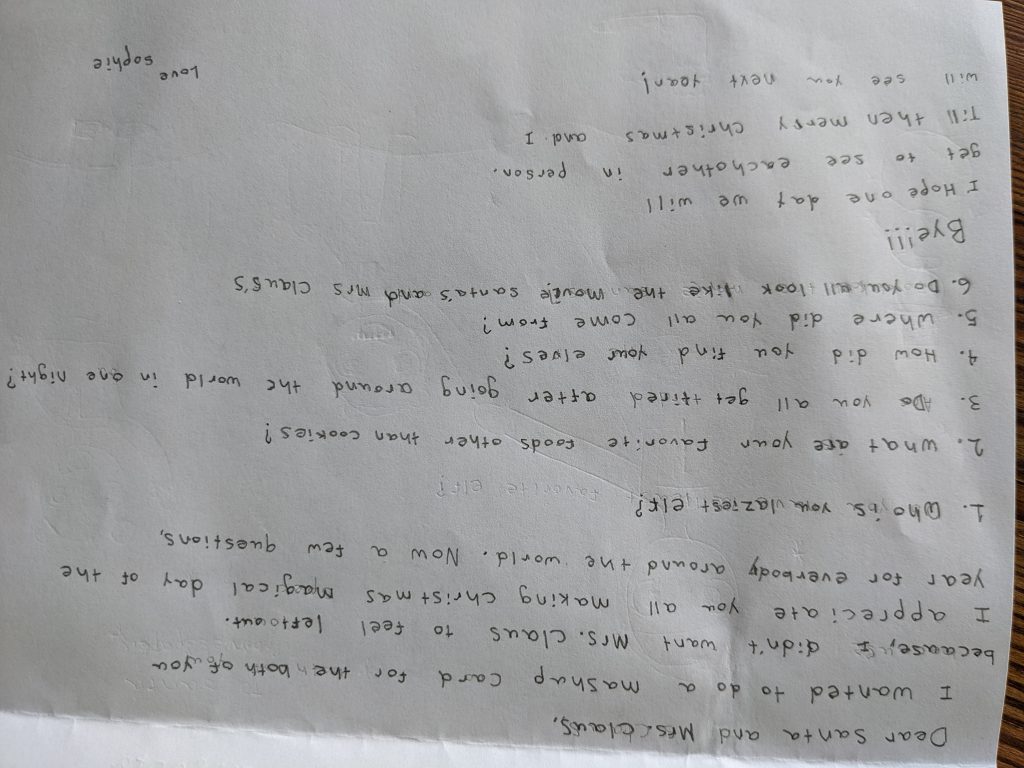 Dear Santa and Mrs. Claus,
I wanted to do a mashup card for the both of you
because, I didn't want Mrs. Claus to feel left out.
I appreciate you all making christmas magical day of the
year for everybody around the world. Now a few questions,
1. Who is your laziest elf?
favorite elf?
2. What are your favorite foods other than cookies?
3. Do you all get tired after going around the world in one night?
4. How did you find your elves?
5. Where did you all come from?
6. Do you all look like the movie santa's and Mrs Claus's
Bye!!!
I Hope one day we will
get to see eachother in person.
Till then merry christmas and I
will see you next year!
Love
Sophie